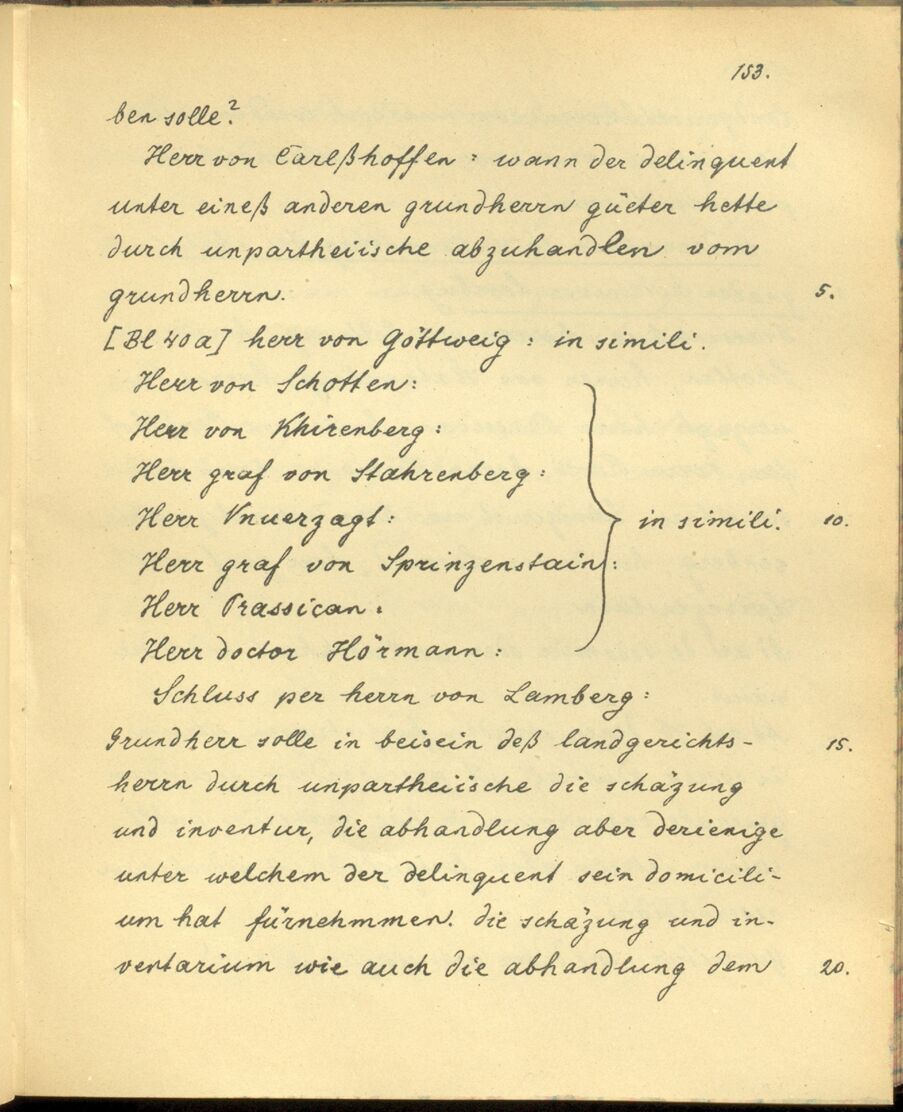 153.
ben solle?
Herr von Carlßhoffen: wann der delinquent
unter eineß anderen grundherrn güeter hette
durch unpartheiische abzuhandlen vom
grundherrn. 5.
[Bl 40a] herr von Göttweig: in simili.
Herr von Schotten:
Herr von Khirenberg:
Herr graf von Stahrenberg:
Herr Vnuerzagt: in simili. 10.
Herr graf von Sprinzenstain:
Herr Prassican:
Herr doctor Hörmann:
Schluss per herrn von Lamberg:
Grundherr solle in beisein deß landgerichts- 15.
herrn durch unpartheiische die schäzung
und inventur, die abhandlung aber derienige
unter welchem der delinquent sein domicili-
um hat fürnehmmen. die schäzung und in-
ventarium wie auch die abhandlung dem 20.